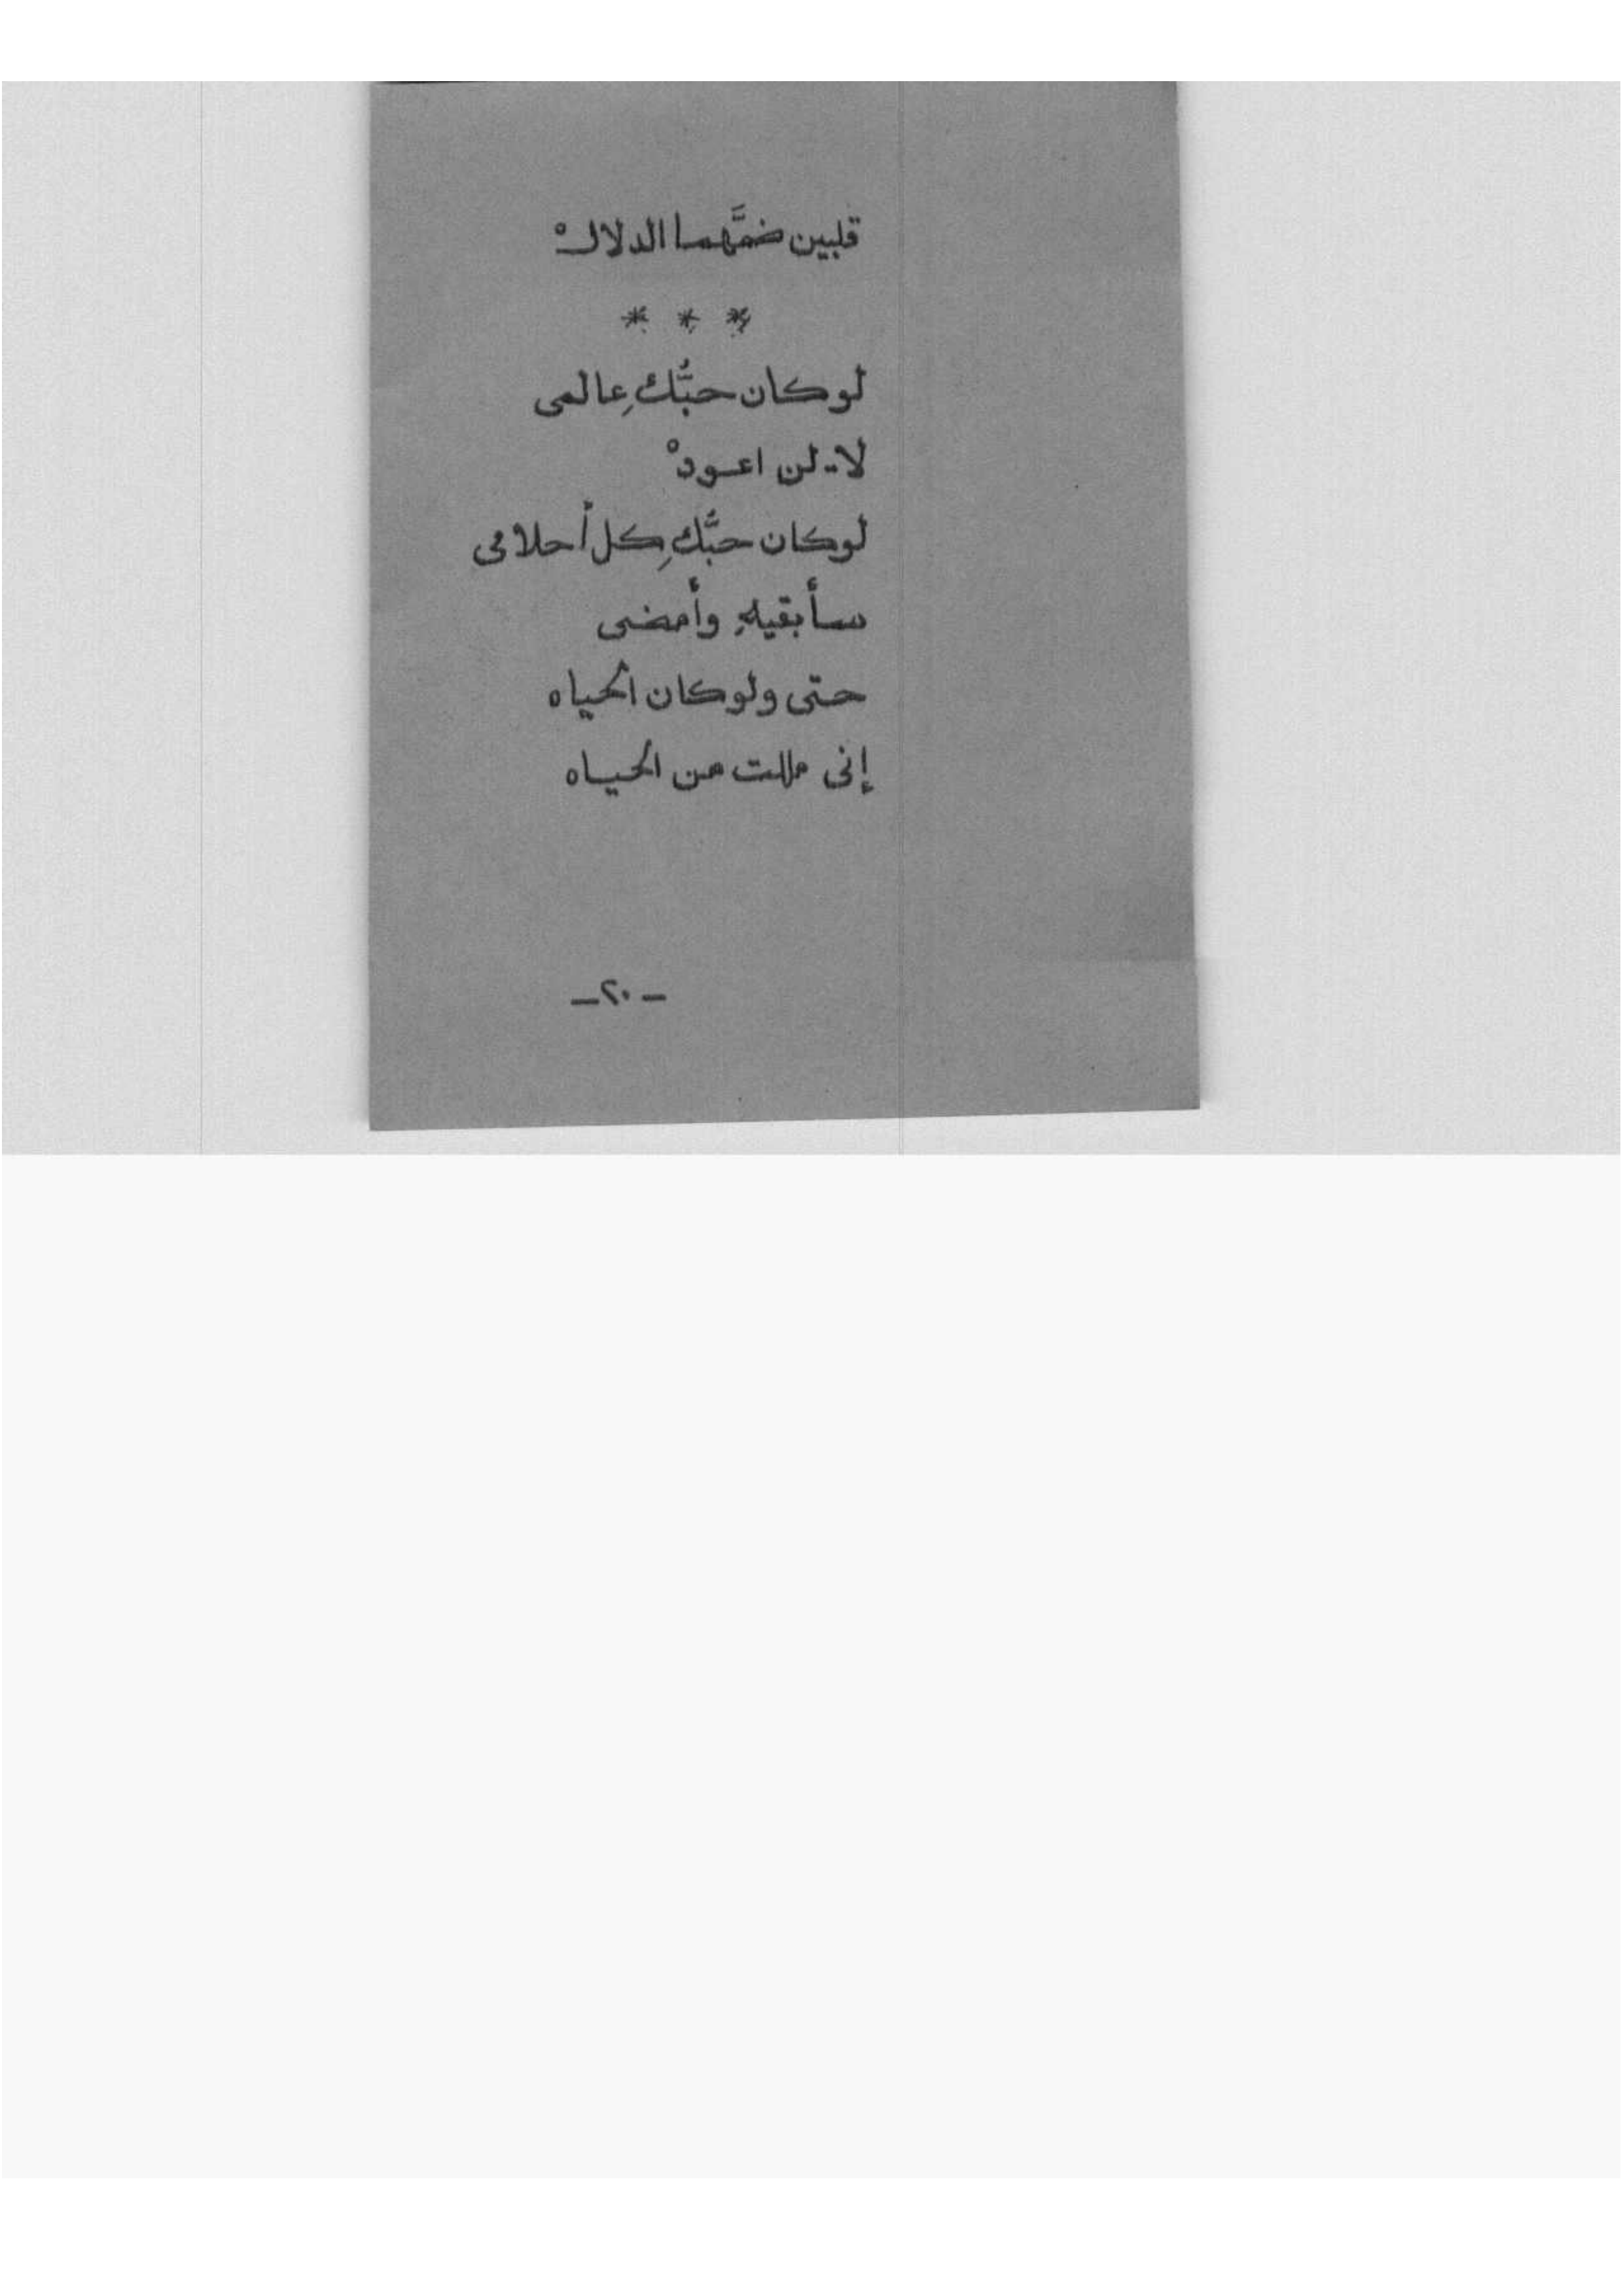 قلبين ضمَّهما الدلالْ
* * *
لو كان حبُّكِ عالمى
لا.. لن اعودْ
لو كان حبُّكِ كل أحلامى
سأبقيهِ وأمضى
حتى ولو كان الحياه
إنى مللت من الحياه
- ٢٠ -